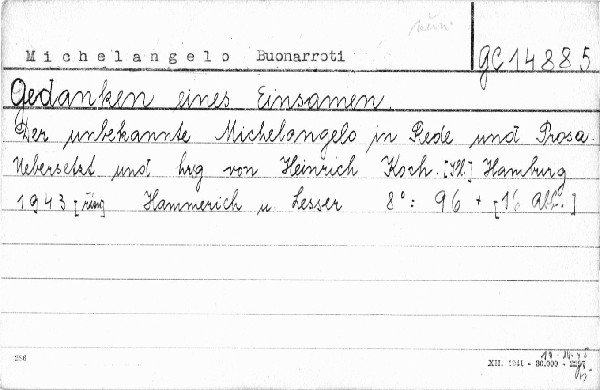 Michelangelo Buonarroti
GC14885
Gedanken eines Einsamen.
Der unbekannte Michelangelo in Rede und Prosa.
Uebersetzt und hrg von Heinrich Koch. [Ill.] Hamburg
1943 Hammerich u. Lesser 8°: 96 + [16 Abb.]
256
XII. 1941 - 80.000 - 2297